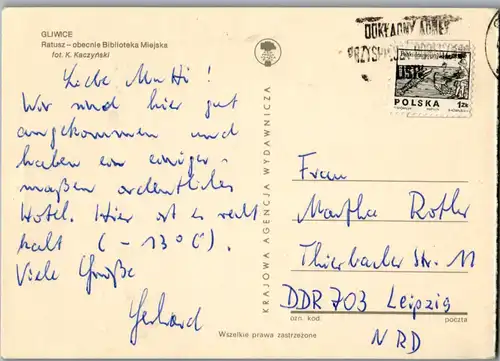 GLIWICE
Ratusz – obecnie Biblioteka Miejska
fot. K. Kaczyński
Liebe Mutti!
Wir sind hier gut
angekommen und
haben ein einiger-
maßen ordentliches
Hotel. Hier ist es recht
kalt (-13°C).
Viele Grüße
Gerhard
KRAJOWA AGENCJA WYDAWNICZA
Wszelkie prawa zastrzeżone
DOKŁADNY ADRES
POLSKA 1ZŁ
Frau
Martha Rotler
Thierbacher Str. 11
DDR 703 Leipzig
ozn. kod. poczta
NRD